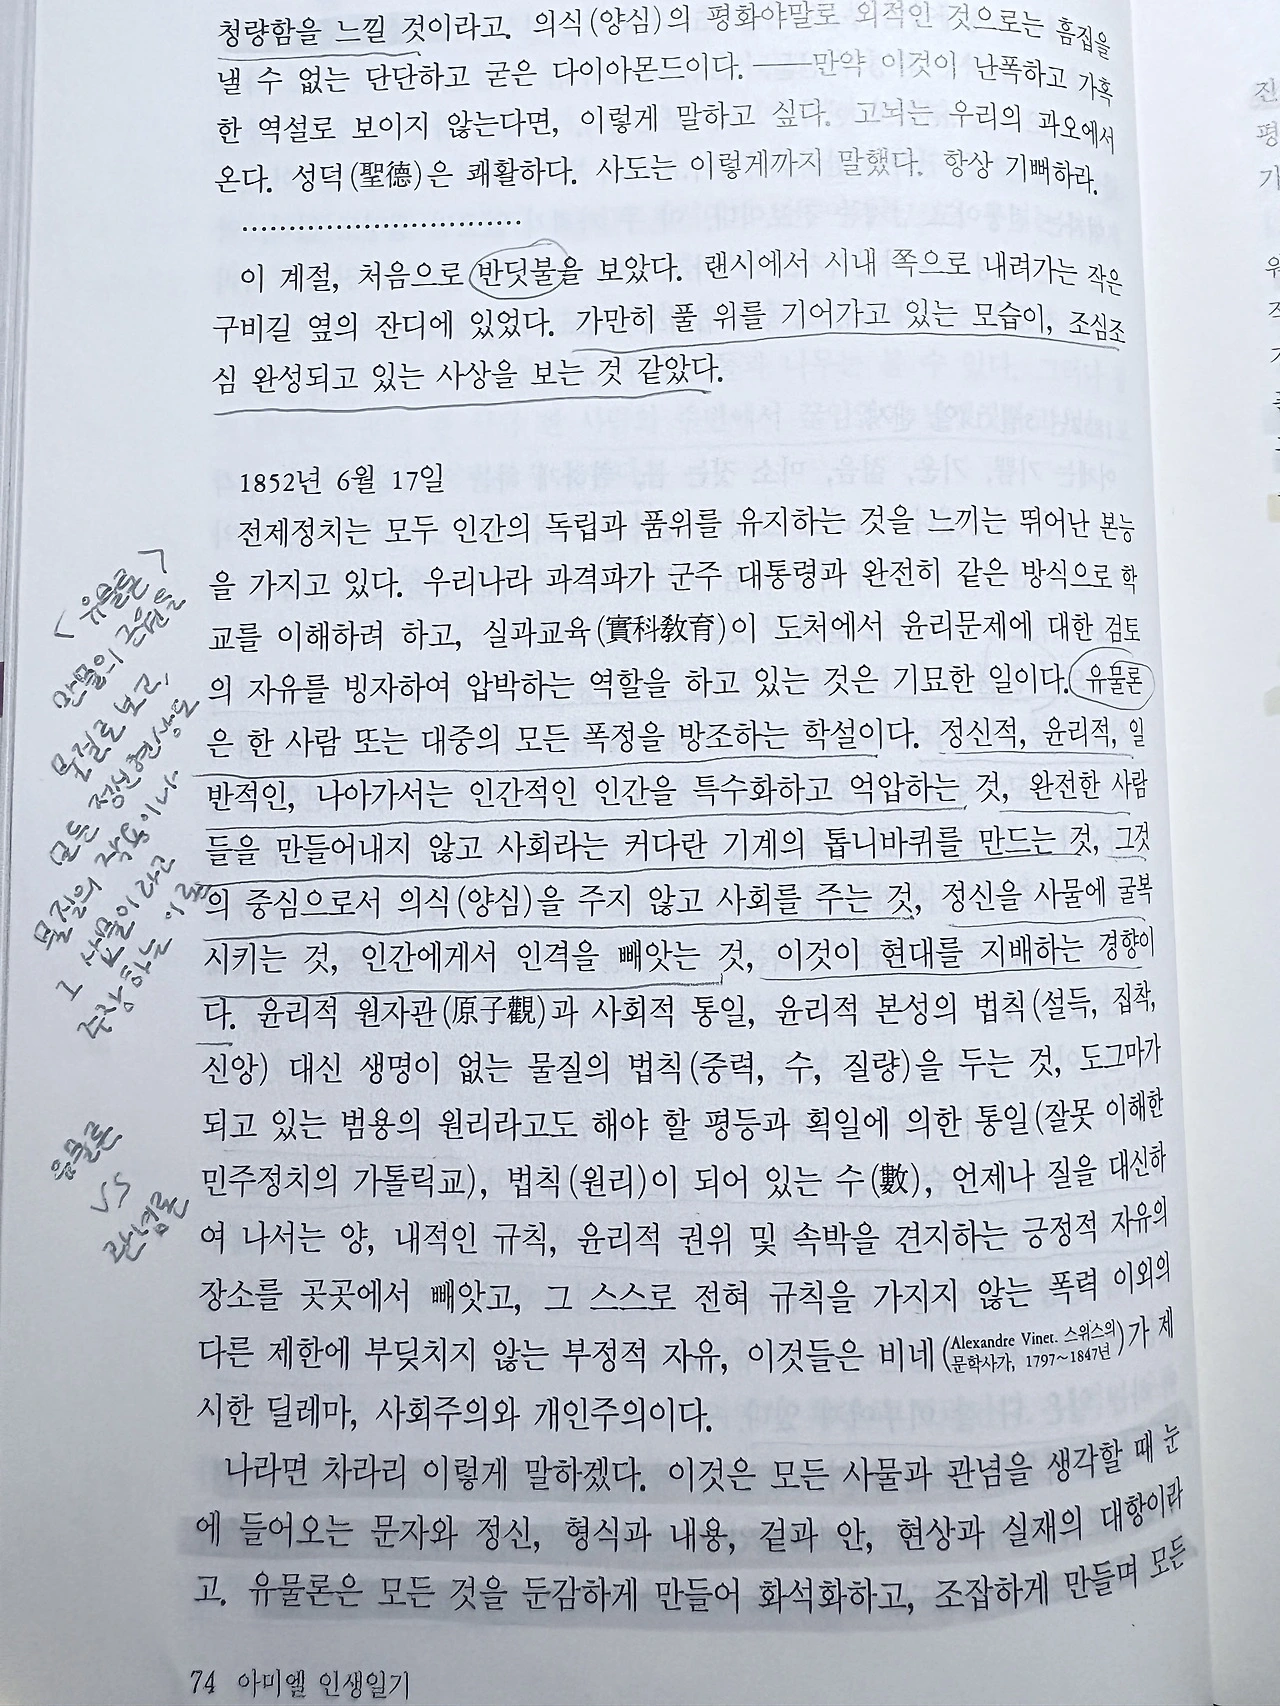 청량함을 느낄 것이라고. 의식(양심)의 평화야말로 외적인 것으로는 흠집을
낼 수 없는 단단하고 굳은 다이아몬드이다. ──만약 이것이 난폭하고 가혹
한 역설로 보이지 않는다면, 이렇게 말하고 싶다. 고뇌는 우리의 과오에서
온다. 성덕(聖德)은 쾌활하다. 사도는 이렇게까지 말했다. 항상 기뻐하라.
······························
이 계절, 처음으로 반딧불을 보았다. 랜시에서 시내 쪽으로 내려가는 작은
구비길 옆의 잔디에 있었다. 가만히 풀 위를 기어가고 있는 모습이, 조심조
심 완성되고 있는 사상을 보는 것 같았다.
1852년 6월 17일
전제정치는 모두 인간의 독립과 품위를 유지하는 것을 느끼는 뛰어난 본능
을 가지고 있다. 우리나라 과격파가 군주 대통령과 완전히 같은 방식으로 학
교를 이해하려 하고, 실과교육(實科敎育)이 도처에서 윤리문제에 대한 검토
의 자유를 빙자하여 압박하는 역할을 하고 있는 것은 기묘한 일이다. 유물론
은 한 사람 또는 대중의 모든 폭정을 방조하는 학설이다. 정신적, 윤리적, 일
반적인, 나아가서는 인간적인 인간을 특수화하고 억압하는 것, 완전한 사람
들을 만들어내지 않고 사회라는 커다란 기계의 톱니바퀴를 만드는 것, 그것
의 중심으로서 의식(양심)을 주지 않고 사회를 주는 것, 정신을 사물에 굴복
시키는 것, 인간에게서 인격을 빼앗는 것, 이것이 현대를 지배하는 경향이
다. 윤리적 원자관(原子觀)과 사회적 통일, 윤리적 본성의 법칙(설득, 집착,
신앙) 대신 생명이 없는 물질의 법칙(중력, 수, 질량)을 두는 것, 도그마가
되고 있는 범용의 원리라고도 해야 할 평등과 획일에 의한 통일(잘못 이해한
민주정치의 가톨릭교), 법칙(원리)이 되어 있는 수(數), 언제나 질을 대신하
여 나서는 양, 내적인 규칙, 윤리적 권위 및 속박을 견지하는 긍정적 자유의
장소를 곳곳에서 빼앗고, 그 스스로 전혀 규칙을 가지지 않는 폭력 이외의
다른 제한에 부딪치지 않는 부정적 자유, 이것들은 비네(Alexandre Vinet. 스위스의 문학사가, 1797~1847년)가 제
시한 딜레마, 사회주의와 개인주의이다.
나라면 차라리 이렇게 말하겠다. 이것은 모든 사물과 관념을 생각할 때 눈
에 들어오는 문자와 정신, 형식과 내용, 겉과 안, 현상과 실재의 대항이라
고. 유물론은 모든 것을 둔감하게 만들어 화석화하고, 조잡하게 만들며 모든
74 아미엘 인생일기
<유물론>
만물의 근원을
물질로 보고,
모든 정신현상도
물질의 작용이나
그 산물이라고
주장하는 이론
유물론
VS
관념론